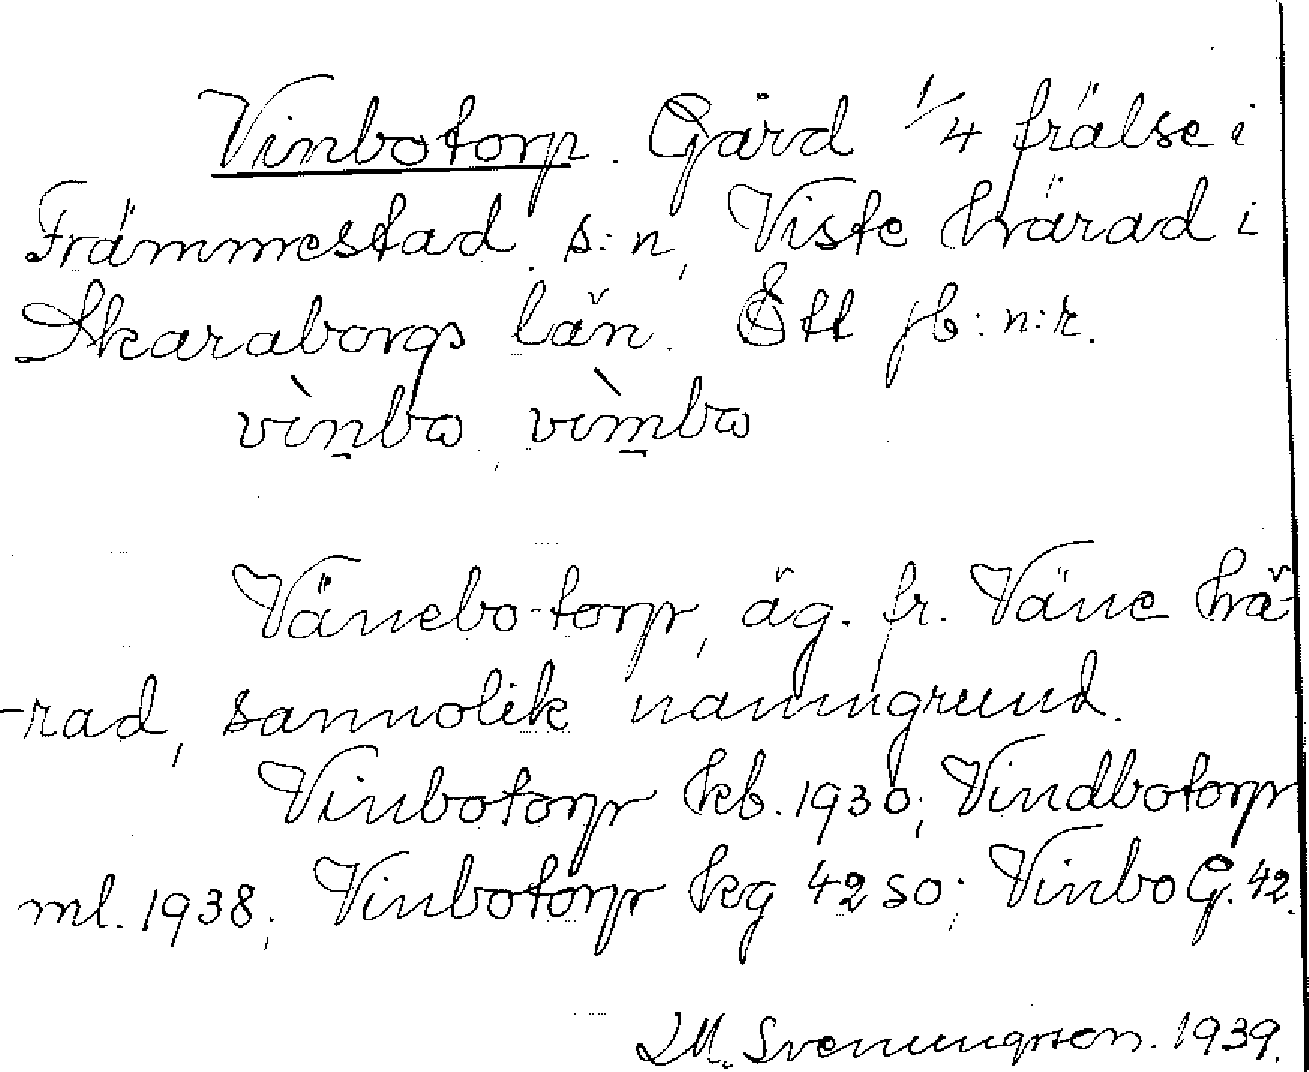 Vinbotorp. Gård 1/4 frälse i
Främmestad s:n, Viste härad i
Skaraborgs län. Ett jb:n:r.
vìnbo, vìmbo
Vänebo-torp, äg. fr. Väne hä-
-rad, sannolik namngrund.
Vinbotorp kb. 1930; Vindbotorp
ml. 1938; Vinbotorp kg 42 so; Vinbo G. 42.
Svenungsson. 1939.